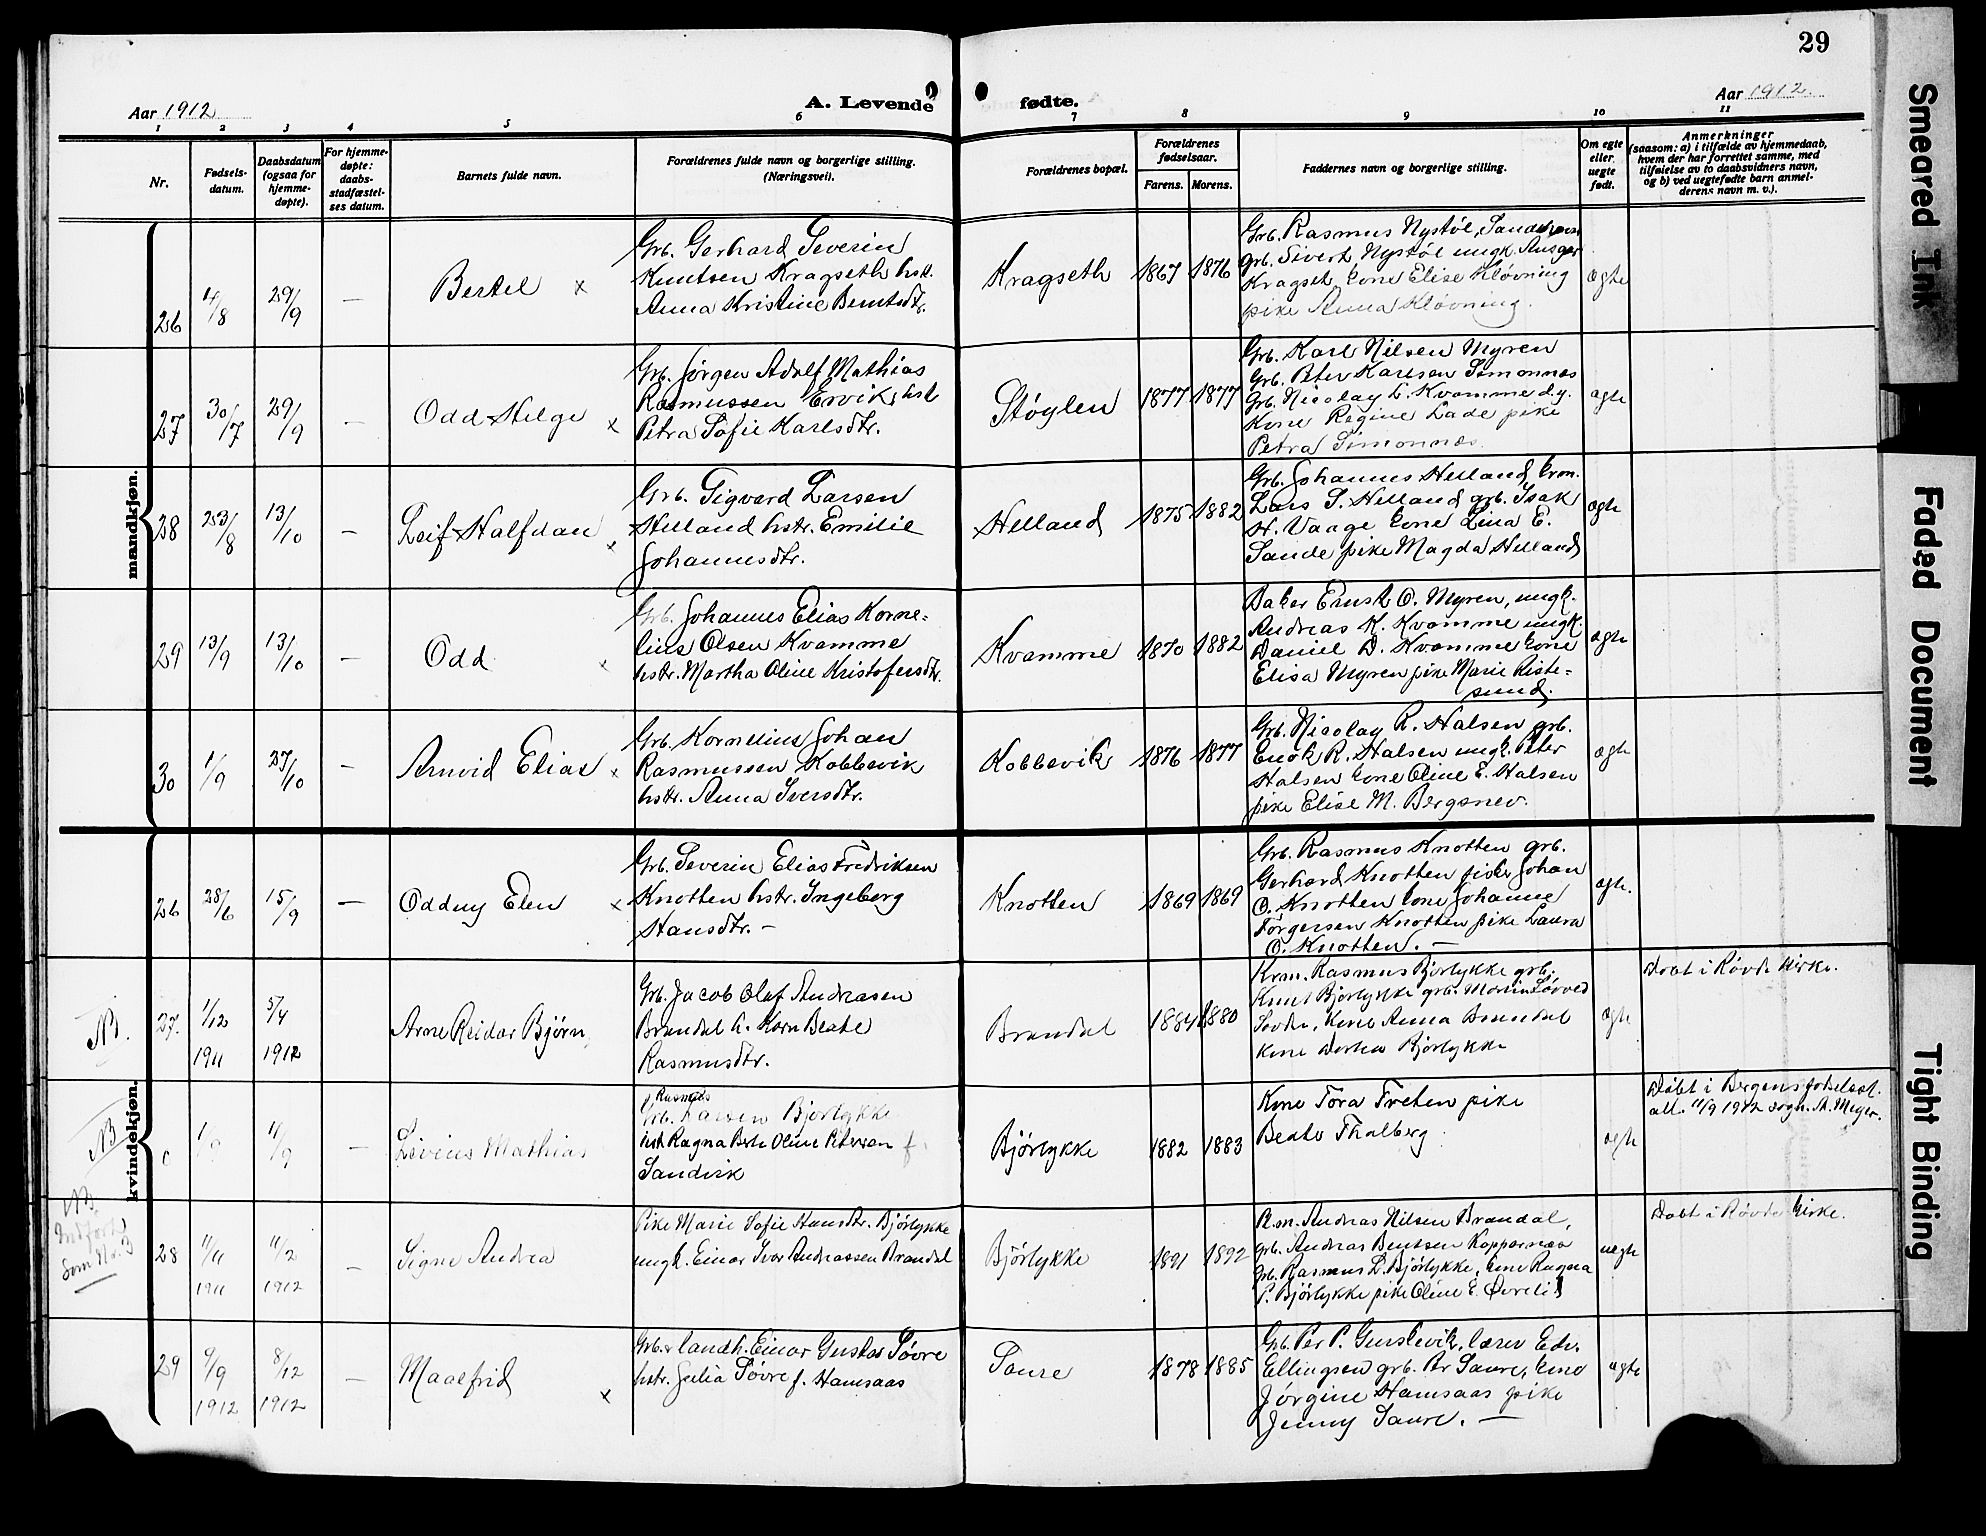 29
Aar 1912
A. Levende
fødte.
Aar 1912.
1 2 3 4 5 6 7 8 9 10 11
Nr.
Fødsels-
datum.
Daabsdatum
(ogsaa for
hjemme-
døpte).
For hjemme-
døpte:
daabs-
stadfæstel-
ses datum.
Barnets fulde navn.
Forældrenes fulde navn og borgerlige stilling.
(Næringsvei).
Forældrenes bopæl.
Forældrenes
fødselsaar.
Farens. Morens.
Faddernes navn og borgerlige stilling.
Om egte
eller
uegte
født.
Anmerkninger
(saasom: a) i tilfælde av hjemmedaab,
hvem der har forrettet samme, med
tilføielse av to daabsvidners navn,
og b) ved uegtefødte barn anmel-
derens navn m. v.).
mandkjøn.
26
4/8
29/9
—
Bertel x
Grb. Gerhard Severin
Knutsen Kragseth hst.
Anna Kristine Berntsdtr.
Kragseth
1867
1876
Grb. Rasmus Nystøl, Sandshavn
grb. Sivert Nystøl ungk. Ansgar
Kragset kone Elise Kløvning
pike Anna Kløvning.
ægte
27
30/7
29/9
—
Odd Helge x
Grb. Jørgen Adolf Mathias
Rasmussen Ervik, hst
Petra Sofie Karlsdtr.
Støylen
1877
1877
Grb. Karl Nilsen Myren
Grb. Peter Karlsen Simonnæs
Grb. Nicolay L. Kvamme d.y.
Kone Regine Lade pike
Petra Simonnæs
ægte
28
23/8
13/10
—
Leif Halfdan x
Grb. Sigvard Larsen
Helland hstr. Emilie
Johannesdtr.
Helland
1875
1882
Grb. Johannes Helland, krom.
Lars S. Helland grb. Isak
H. Vaage kone Lina E.
Sande pike Magda Helland
ægte
29
13/9
13/10
—
Odd x
Grb. Johannes Elias Korne-
lius Olsen Kvamme
hstr. Martha Oline Kristofersdtr.
Kvamme
1870
1882
Baker Ernst O. Myren, ungk.
Andreas K. Kvamme ungk.
Daniel D. Kvamme kone
Elisa Myren pike Marie Riste-
sund.
ægte
30
1/9
27/10
—
Arnvid Elias x
Grb. Kornelius Johan
Rasmussen Kobbevik
hstr. Anna Iversdtr.
Kobbevik
1876
1877
Grb. Nicolay R. Halsen grb.
Enok R. Halsen ungk. Peter
Halsen kone Oline E. Halsen
pike Elise M. Bergsnev.
ægte
kvindekjøn.
26
28/6
15/9
—
Oddny Elen x
Grb. Severin Elias Fredriksen
Knotten hstr. Ingeborg
Hansdtr. —
Knotten
1869
1869
Grb. Rasmus Knotten grb.
Gerhard Knotten fisker Johan
O. Knotten kone Johanne
Torgersen Knotten pike Laura
O. Knotten. —
ægte.
NB.
27.
1/12
1911
5/4
1912
Arne Reidar Bjørn
Grb. Jacob Olaf Andreasen
Brandal h. Korn Beate
Rasmusdtr.
Brandal
1884
1880
Krm. Rasmus Bjørlykke grb.
Knut Bjørlykke grb. Martin
Sovde, Kone Anna Brandal
kone Dorthea Bjørlykke
ægte
Døbt i Røvde Kirke.
NB
1/9
11/9
—
Livius Mathias
Rasmus
Grb. Larsen Bjørlykke
hst Ragna Berte Oline Petersen f.
Sandvik
Bjørlykke
1882
1883
Kone Tora Freten pike
Beate Thalberg
ægte
Døbt i Bergens fødselsst.
att. 11/9 1912 sogn. A. Meyer.
NB.
Indført
som No. 3
28
11/11
1911
11/2
1912
—
Signe Andrea
Pike Marie Sofie Hansdtr. Bjørlykke
ungk. Einar Ivar Andreassen Brandal
Bjørlykke
1891
1892
Km. Andreas Nilsen Brandal,
grb. Andreas Bentsen Koppernæs
Grb. Rasmus L. Bjørlykke, kone Ragna
P. Bjørlykke pike Oline E. Øvrelid
uegte
Døbt i Røvde kirke.
29
9/9
1912
8/12
1912
—
Maalfrid x
Grb. & landh. Einar Gustav Søvre
hstr. Julia Søvre f. Hamsaas
Saure
1878
1885
Grb. Per P. Gurskevik, lærer Edv.
Ellingsen grb. Per Saure, kone
Jørgine Hamsaas pike
Jenny Saure. —
ægte
Smeared Ink
Faded Document
Tight Binding